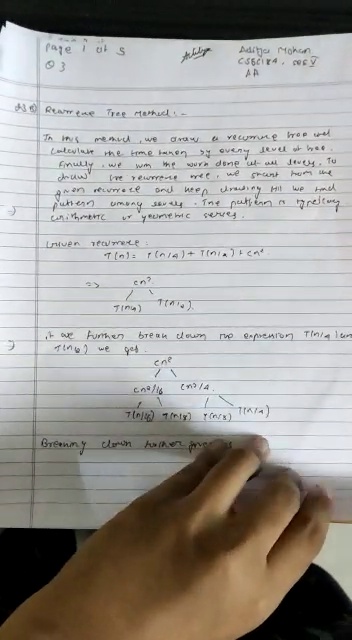 Page 1 of 5
Aditya
Aditya Mohan
Q 3
CSE
AA
Recurrence Tree Method :-
In this method, we draw a recurrence tree and
calculate the time taken by every level of tree.
Finally, we sum the work done at all levels. To
draw the recurrence tree, we start from the
given recurrence and keep drawing till we find
pattern among levels. The pattern is typically
arithmetic or geometric series.
Given recurrence:
T(n) = T(n/4) + T(n/2) + cn²
=> cn²
T(n/4) T(n/2)
if we further break down the expression T(n/4) and
T(n/2) we get.
cn²
cn²/16 cn²/4
T(n/16) T(n/8) T(n/8) T(n/4)
Breaking down further gives us